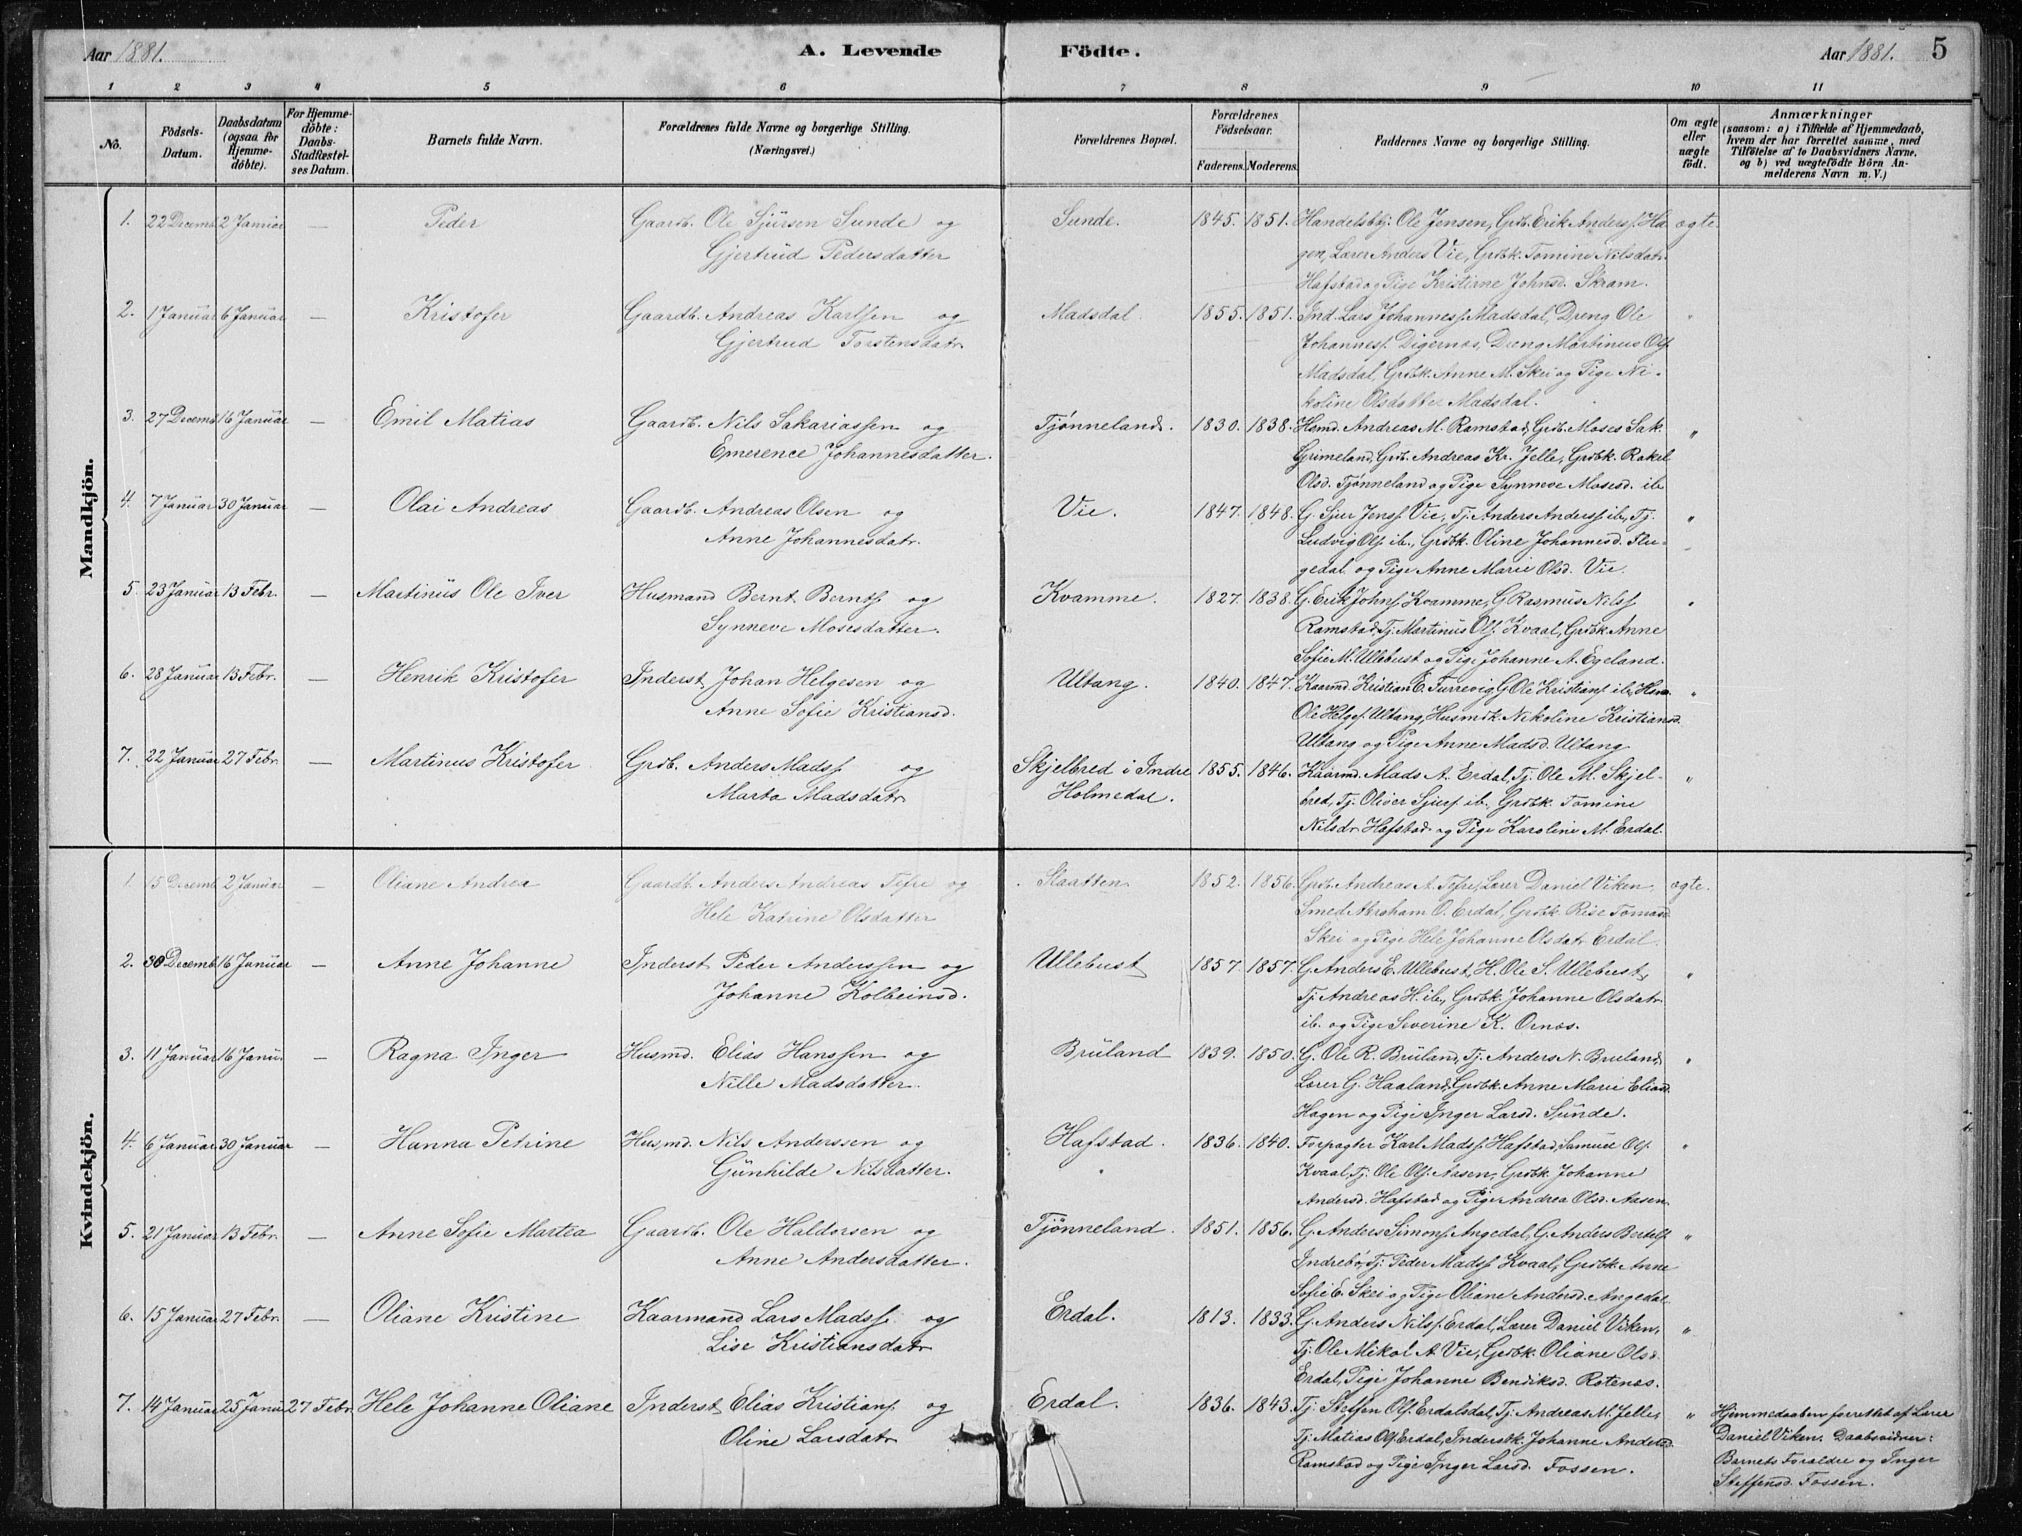 Aar 1881. A. Levende Födte. Aar 1881. 5
1 2 3 4 5 6 7 8 9 10 11
No. Födsels-Datum. Daabsdatum (ogsaa for Hjemmedöbte). For Hjemmedöbte: Daabs-Stadfæstelses Datum. Barnets fulde Navn. Forældrenes fulde Navne og borgerlige Stilling. (Næringsvei.) Forældrenes Bopæl. Forældrenes Födselsaar. Faderens. Moderens. Faddernes Navne og borgerlige Stilling. Om ægte eller uægte födt. Anmærkninger (saasom: a) i Tilfælde af Hjemmedaab, hvem der har forrettet samme, med Tilföielse af to Daabsvidners Navne, og b) ved uægtefödte Börn Anmelderens Navn m. V.)
Mandkjön.
1. 22 Decemb. 2 Januar — Peder Gaardb. Ole Sjursen Sunde og Sunde. 1845. 1851. Handelsbtj. Ole Jensen, Grdb. Erik Anderss. Ha ægte.
Gjertrud Pedersdatter gen, Lærer Anders Vie, Grdbk. Tomine Nilsdatr.
Hafstad og Pige Kristiane Johnsd. Skram.
2. 1 Januar 6 Januar — Kristofer Gaardb. Andreas Karlssen og Madsdal. 1855. 1851. Ind. Lars Johanness. Madsdal, Dreng Ole "
Gjertrud Torstensdatr. Johanness. Digernes, Dreng Martinus Ols.
Madsdal, Grdbk. Anne M. Skei og Pige Ni-
koline Olsdatter Madsdal.
3. 27 Decemb. 16 Januar — Emil Matias Gaardb. Nils Sakariassen og Tjønneland. 1830. 1838. Hsmd. Andreas M. Ramstad, Grdb. Moses Sak. "
Emerence Johannesdatter. Grimeland, Grdb. Andreas Kr. Jelle, Grdbk. Rakel
Olsd. Tjønneland og Pige Synneve Mosesd. ib.
4. 7 Januar 30 Januar — Olai Andreas Gaardb. Andreas Olsen og Vie. 1847. 1848. G. Sjur Jenss. Vie, Tj. Anders Anderss. ib., Tj. "
Anne Johannesdatr. Ludvig Ols. ib., Grdbk. Oline Johannesd. Flu-
gedal og Pige Anne Marie Olsd. Vie.
5. 23 Januar 13 Febr. — Martinus Ole Iver Husmand Bernt Bernts. og Kvamme. 1827. 1838. G. Erik Johns. Kvamme, G. Rasmus Nilss. "
Synneve Mosesdatter. Ramstad, Tj. Martinus Ols. Kvaal, Grdbk. Anne
Sofie M. Ullebust og Pige Johanne A. Egeland.
6. 28 Januar 13 Febr. — Henrik Kristofer Inderst Johan Helgesen og Ultang. 1840. 1847. Kaarmd. Kristian E. Furrevig, G. Ole Kristians. ib., Hsm. "
Anne Sofie Kristiansd. Ole Helges. Ultang, Husmdk. Nikoline Kristiansd.
Ultang og Pige Anne Madsd. Ultang
7. 22 Januar 27 Febr. — Martinus Kristofer Grdb. Anders Madss. og Skjelbred i Indre 1855. 1846. Kaarmd. Mads A. Erdal, Tj. Ole M. Skjel- "
Marta Madsdatr. Holmedal. bred, Tj. Oliver Sjurs. ib., Grdbk. Tomine
Nilsdr. Hafstad og Pige Karoline M. Erdal.
Kvindekjön.
1. 15 Decemb. 2 Januar — Oliane Andrea Gaardb. Anders Andreas Tefre og Slaatten. 1852. 1856. Grdb. Andreas A. Tefre, Lærer Daniel Viken, ægte.
Hele Katrine Olsdatter Smed Abraham O. Erdal, Grdbk. Rise Tomasd.
Skei og Pige Hele Johanne Olsdatr. Erdal.
2. 30 Decemb. 16 Januar — Anne Johanne Inderst Peder Anderssen og Ullebust 1857. 1857. G. Anders E. Ullebust, H. Ole S. Ullebust, "
Johanne Kolbeinsd. Tj. Andreas H. ib., Grdbk. Johanne Olsdatr.
ib. og Pige Severine K. Ornes.
3. 11 Januar 16 Janu. — Ragna Inger Husmd. Elias Hanssen og Bruland 1839. 1850. G. Ole R. Bruland, Tj. Anders N. Bruland, "
Nille Madsdatter. Lærer G. Haaland, Grdbk. Anne Marie Eliasd.
Hagen og Pige Inger Larsd. Sunde.
4. 6 Januar 30 Januar — Hanna Petrine Husmd. Nils Anderssen og Hafstad. 1836. 1840. Forpagter Karl Madss. Hafstad, Samuel Ols. "
Gunhilde Nilsdatter. Kvaal, Tj. Ole Ols. Aasen, Grdbk. Johanne
Andersd. Hafstad og Pige Andrea Olsd. Aasen.
5. 21 Januar 13 Febr. — Anne Sofie Martea Gaardb. Ole Haldorsen og Tjønneland. 1851. 1856. G. Anders Simons. Angedal, G. Anders Bertels. "
Anne Andersdatter. Indrebø, Tj. Peder Madss. Kvaal, Grdbk. Anne
Sofie E. Skei og Pige Oliane Andersd. Angedal.
6. 15 Januar 27 Febr. — Oliane Kristine Kaarmand Lars Madss. og Erdal. 1813. 1833. G. Anders Nilss. Erdal, Lærer Daniel Viken, "
Lise Kristiansdatr. Tj. Ole Mikal A. Vie, Grdbk. Oliane Olsd.
Erdal, Pige Johanne Bendiksd. Rotenes.
7. 14 Januar 25 Janu. 27 Febr. Hele Johanne Oliane Inderst Elias Kristians. og Erdal. 1836. 1843. Tj. Steffen Ols. Erdalsdal, Tj. Andreas M. Jelle, " Hjemmedaaben forrettet af Lærer
Oline Larsdatr. Tj. Matias Ols. Erdal, Inderstk. Johanne Andersd. Daniel Viken. Daabsvidner:
Ramstad og Pige Inger Larsd. Fossen. Barnets Forældre og Inger
Steffensd. Fossen.